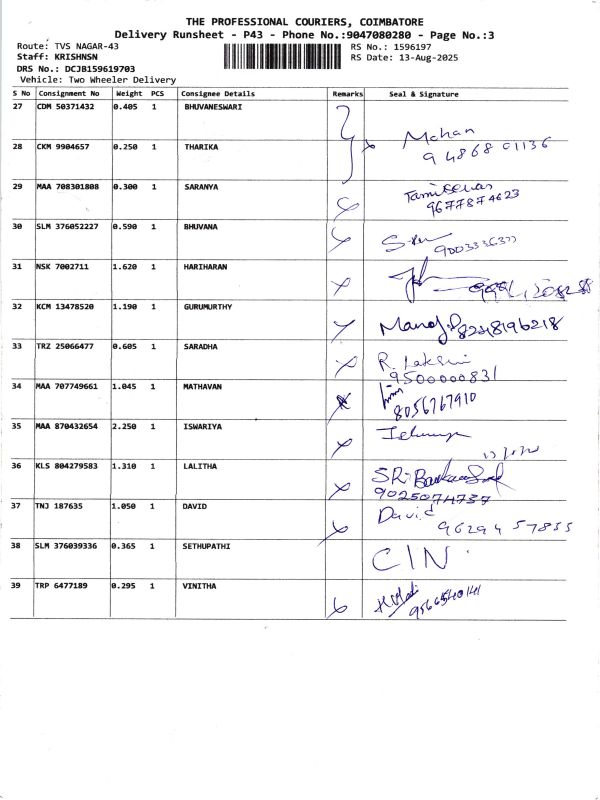 THE PROFESSIONAL COURIERS, COIMBATORE
Delivery Runsheet - P43 - Phone No.:9047080280 - Page No.:3
Route: TVS NAGAR-43 RS No.: 1596197
Staff: KRISHNSN RS Date: 13-Aug-2025
DRS No.: DCJB159619703
Vehicle: Two Wheeler Delivery
S No Consignment No Weight PCS Consignee Details Remarks Seal & Signature
27 CDM 50371432 0.405 1 BHUVANESWARI
Mohan
28 CKM 9904657 0.250 1 THARIKA
9486801136
29 MAA 708301808 0.300 1 SARANYA
9677874623
30 SLM 376052227 0.590 1 BHUVANA
31 NSK 7002711 1.620 1 HARIHARAN
32 KCM 13478520 1.190 1 GURUMURTHY
Manoj 8248196218
33 TRZ 25066477 0.605 1 SARADHA
R. Lakshmi
9500000831
34 MAA 707749661 1.045 1 MATHAVAN
8056767910
35 MAA 870432654 2.250 1 ISWARIYA
36 KLS 804279583 1.310 1 LALITHA
SRi
9025074737
37 TNJ 187635 1.050 1 DAVID
David
96294 57855
38 SLM 376039336 0.365 1 SETHUPATHI
CIN
39 TRP 6477189 0.295 1 VINITHA